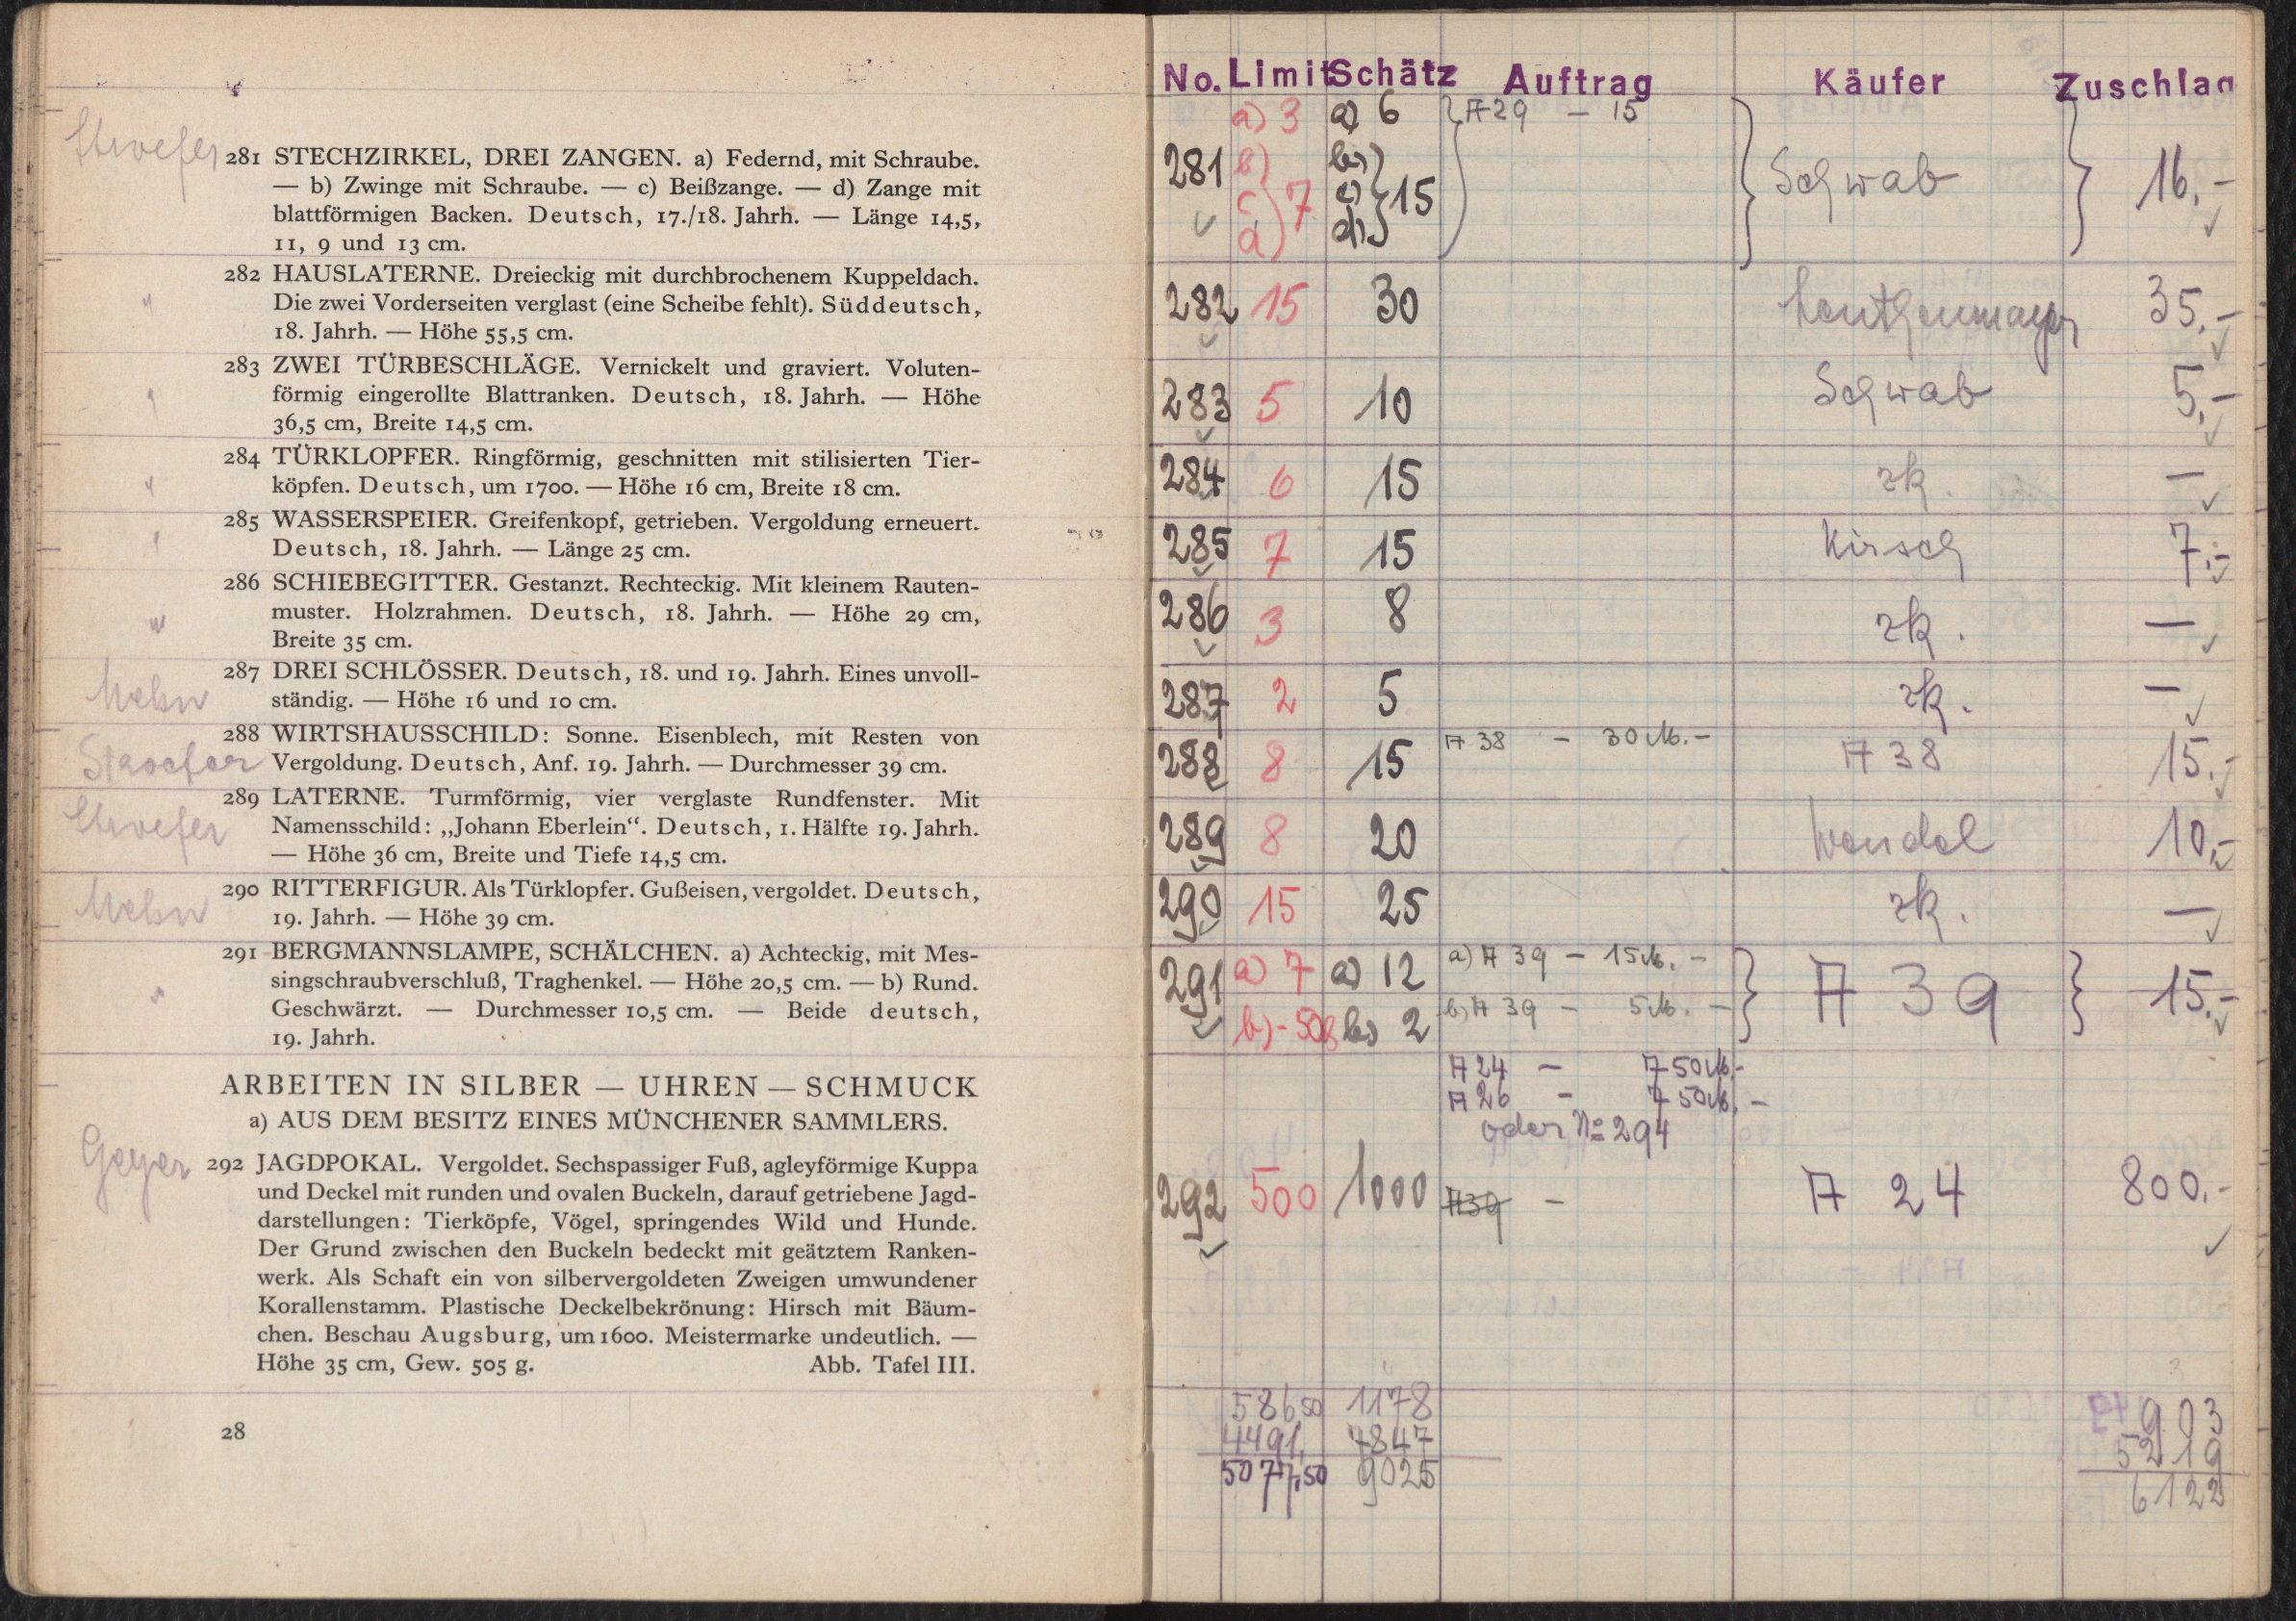 281 STECHZIRKEL, DREI ZANGEN. a) Federnd, mit Schraube.
— b) Zwinge mit Schraube. — c) Beißzange. — d) Zange mit
blattförmigen Backen. Deutsch, 17./18. Jahrh. — Länge 14,5,
11, 9 und 13 cm.
282 HAUSLATERNE. Dreieckig mit durchbrochenem Kuppeldach.
Die zwei Vorderseiten verglast (eine Scheibe fehlt). Süddeutsch,
18. Jahrh. — Höhe 55,5 cm.
283 ZWEI TÜRBESCHLÄGE. Vernickelt und graviert. Voluten-
förmig eingerollte Blattranken. Deutsch, 18. Jahrh. — Höhe
36,5 cm, Breite 14,5 cm.
284 TÜRKLOPFER. Ringförmig, geschnitten mit stilisierten Tier-
köpfen. Deutsch, um 1700. — Höhe 16 cm, Breite 18 cm.
285 WASSERSPEIER. Greifenkopf, getrieben. Vergoldung erneuert.
Deutsch, 18. Jahrh. — Länge 25 cm.
286 SCHIEBEGITTER. Gestanzt. Rechteckig. Mit kleinem Rauten-
muster. Holzrahmen. Deutsch, 18. Jahrh. — Höhe 29 cm,
Breite 35 cm.
287 DREI SCHLÖSSER. Deutsch, 18. und 19. Jahrh. Eines unvoll-
ständig. — Höhe 16 und 10 cm.
288 WIRTSHAUSSCHILD: Sonne. Eisenblech, mit Resten von
Vergoldung. Deutsch, Anf. 19. Jahrh. — Durchmesser 39 cm.
289 LATERNE. Turmförmig, vier verglaste Rundfenster. Mit
Namensschild: „Johann Eberlein“. Deutsch, 1. Hälfte 19. Jahrh.
— Höhe 36 cm, Breite und Tiefe 14,5 cm.
290 RITTERFIGUR. Als Türklopfer. Gußeisen, vergoldet. Deutsch,
19. Jahrh. — Höhe 39 cm.
291 BERGMANNSLAMPE, SCHÄLCHEN. a) Achteckig, mit Mes-
singschraubverschluß, Traghenkel. — Höhe 20,5 cm. — b) Rund.
Geschwärzt. — Durchmesser 10,5 cm. — Beide deutsch,
19. Jahrh.
ARBEITEN IN SILBER — UHREN — SCHMUCK
a) AUS DEM BESITZ EINES MÜNCHENER SAMMLERS.
Geyer 292 JAGDPOKAL. Vergoldet. Sechspassiger Fuß, agleyförmige Kuppa
und Deckel mit runden und ovalen Buckeln, darauf getriebene Jagd-
darstellungen: Tierköpfe, Vögel, springendes Wild und Hunde.
Der Grund zwischen den Buckeln bedeckt mit geätztem Ranken-
werk. Als Schaft ein von silbervergoldeten Zweigen umwundener
Korallenstamm. Plastische Deckelbekrönung: Hirsch mit Bäum-
chen. Beschau Augsburg, um 1600. Meistermarke undeutlich. —
Höhe 35 cm, Gew. 505 g. Abb. Tafel III.
28
No. Limit Schätz Auftrag Käufer Zuschlag
a) 3 a) 6 A 29 – 15
281 b) c) d) 7 b) c) d) 15 Schwab 16.–
282 15 30 35.–
283 5 10 Schwab 5.–
284 6 15 zk. –
285 7 15 Kirsch 7.–
286 3 8 zk. –
287 2 5 zk. –
288 8 15 A 38 – 30 M. – A 38 15.–
289 8 20 Wendel 10.–
290 15 25 zk. –
291 a) 7 a) 12 a) A 39 – 15 M. – A 39 15.–
b) -50 b) 2 b) A 39 – 5 M. –
A 24 – 750 M.–
A 26 – 750 M. –
oder No 294
292 500 1000 A39 – A 24 800.–
586,50 1178 903
4491. 7847 5219
5077,50 9025 6122